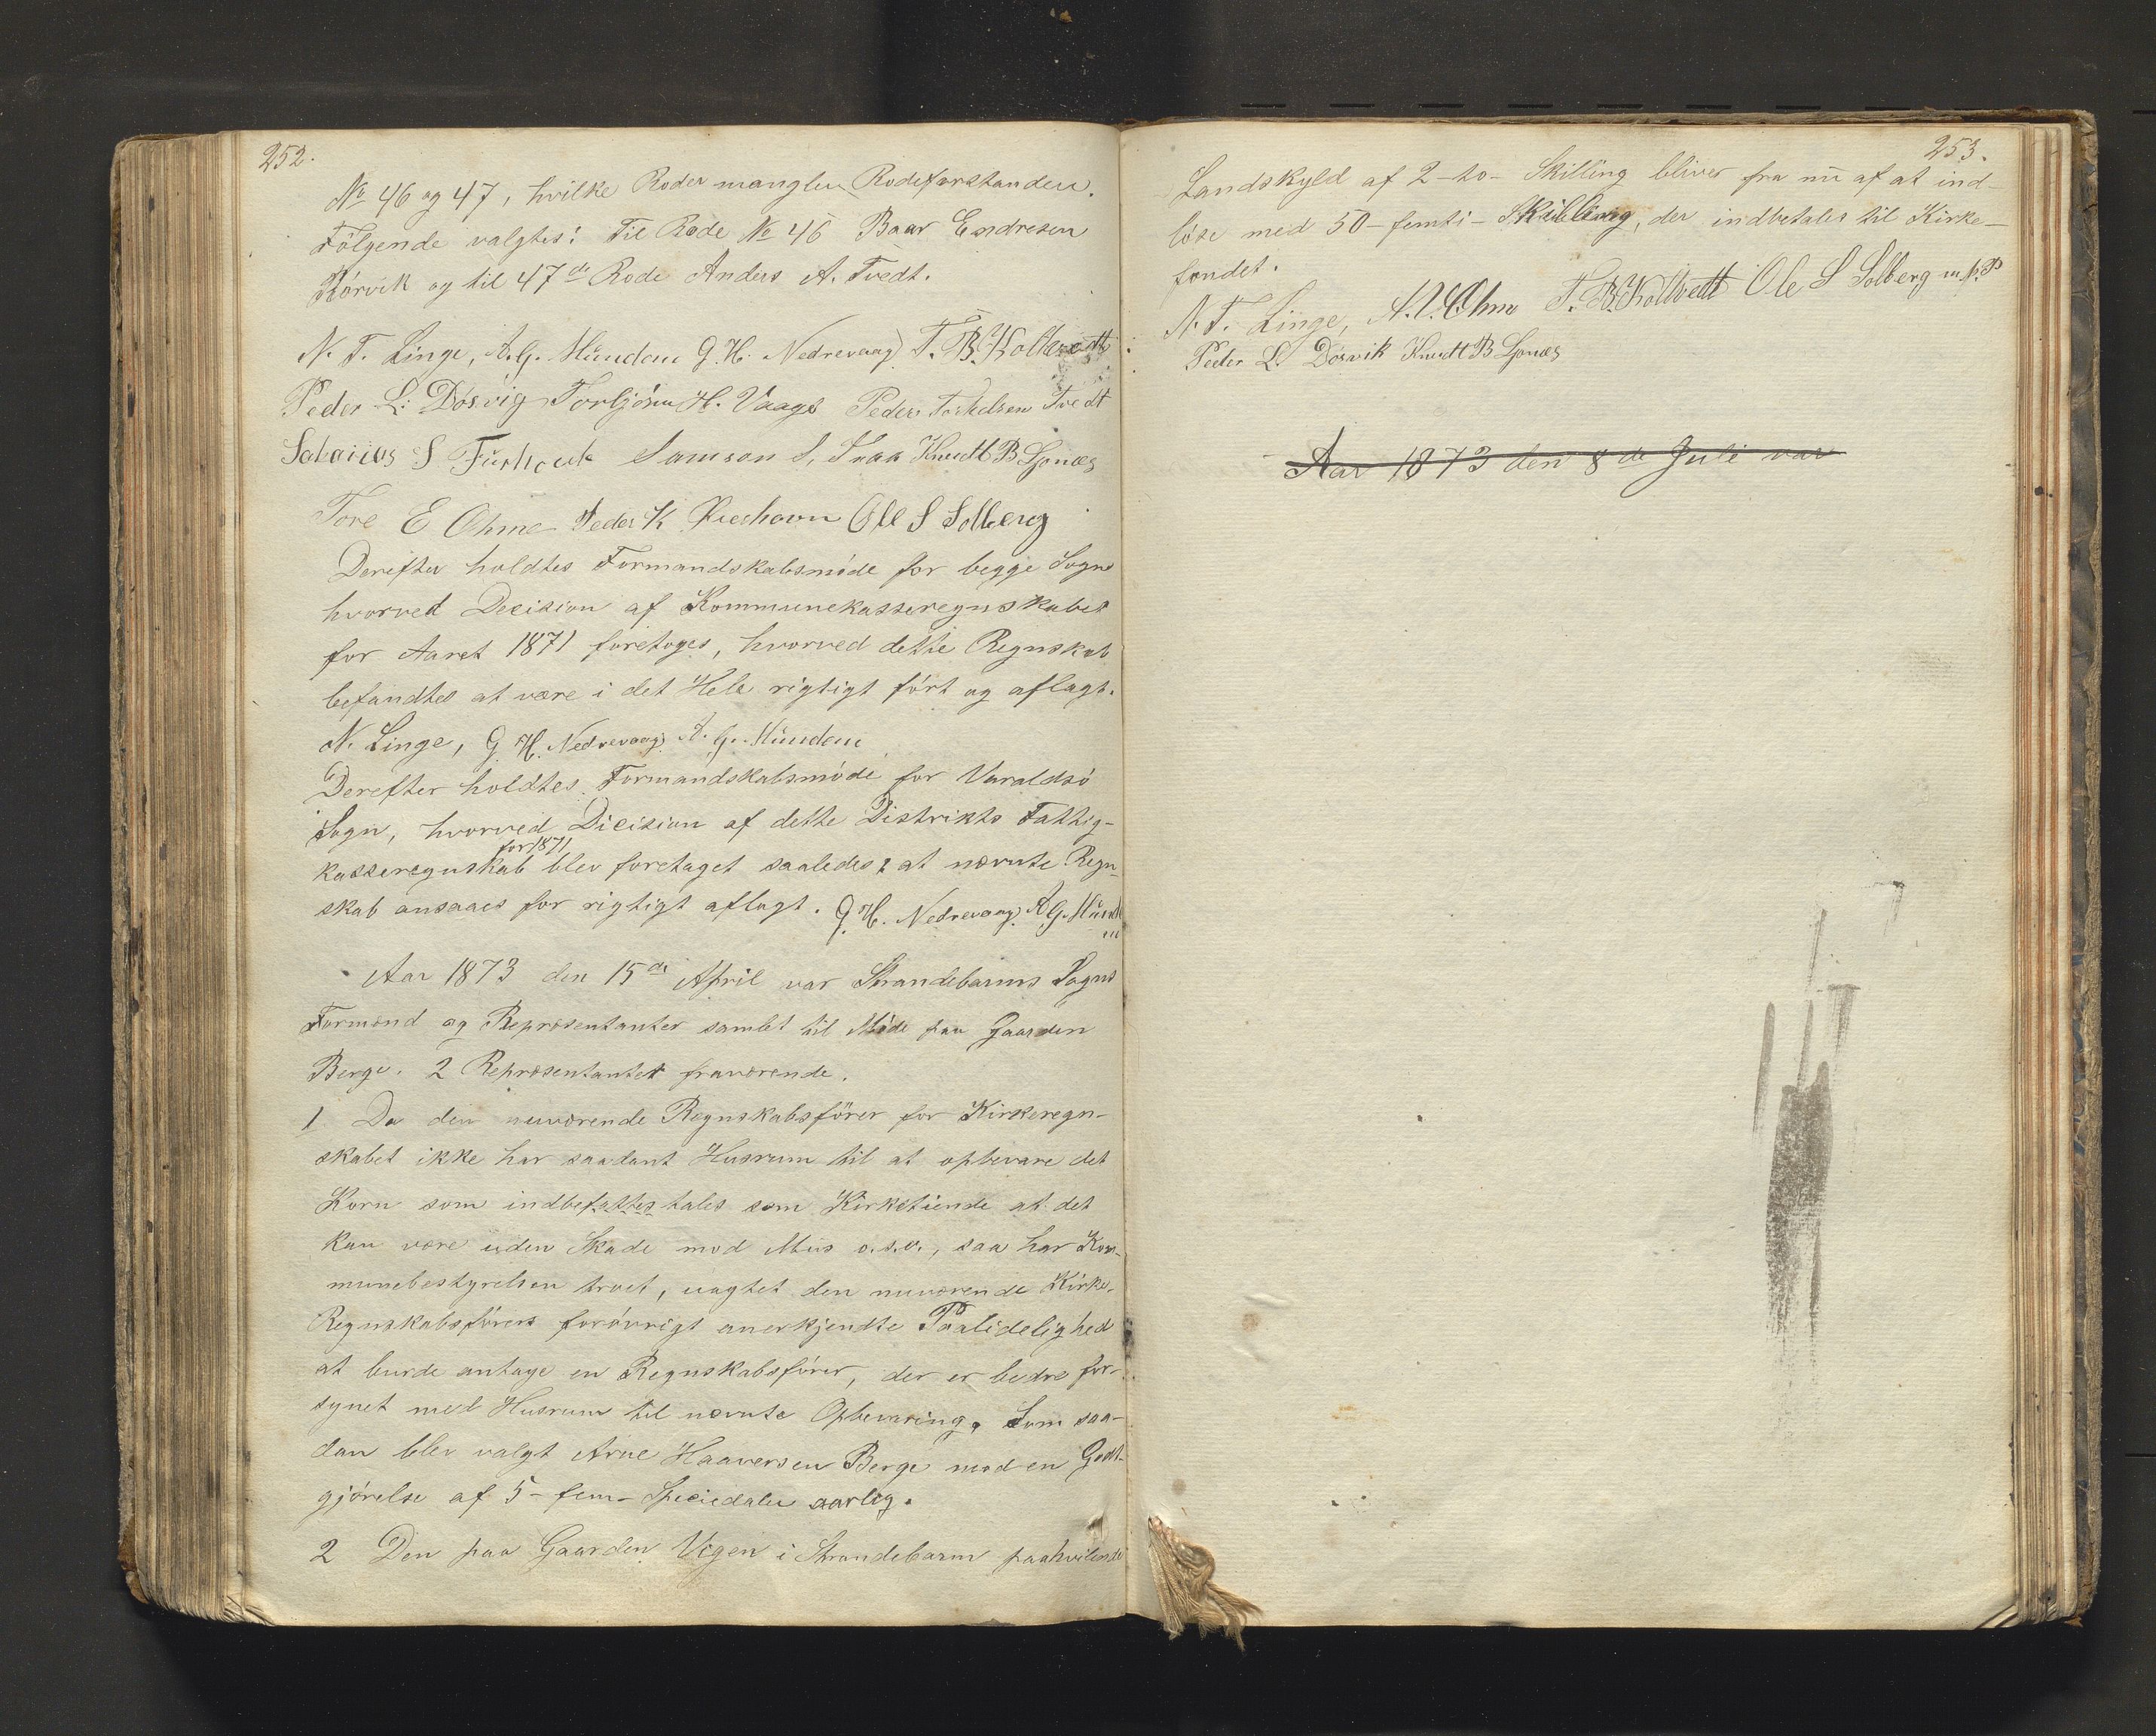 252.
No 46 og 47, hvilke Roder mangler Rodeforstandere.
Følgende valgtes: Til Rode No 46 Baar Endresen
Kørvik og til 47de Rode Anders A. Tvedt.
N. T. Linge, A. G. Mundem G. H. Nedrevaag T. B. Koltvedt
Peder L: Døsvig Torbjørn H. Vaage Peder Torkelsen Tvedt
S Fureh Samson S, Traa Knudt B Ljonæs
Tore E Ohme Peder K Ole S Solberg
Derefter holdtes Formandskabsmøde for begge Sogne
hvorved Decision af Kommunekasseregnskabet
for Aaret 1871 foretoges, hvorved dette Regnskab
befandtes at være i det Hele rigtigt ført og aflagt.
N. Linge, G. H. Nedrevaag A. G. Mundem
Derefter holdtes Formandskabsmøde for Varaldsø
Sogn, hvorved Dicision af dette Distrikts Fattig-
for 1871
kasseregnskab blev foretaget saaledes at nævnte Regn-
skab ansaaes for rigtigt aflagt. G. H. Nedrevaag A G. Munde
m
Aar 1873 den 15de April var Strandebarms Sogns
Formænd og Repræsentanter samlet til Møde paa Gaarden
Berge. 2 Repræsentanter fraværende.
1. Da den nuværende Regnskabsfører for Kirkeregn-
skabet ikke har saadant Husrum til at opbevare det
Korn som indbefattes tales som Kirketiende at det
kan være uden Skade mod Mus o.s.v., saa har Kom-
munebestyrelsen troet, uagtet den nuværende Kirke-
Regnskabsførers forøvrigt anerkjendte Paalidelighed
at burde antage en Regnskabsfører, der er bedre for-
synet med Husrum til nævnte Opbevaring. Som saa-
dan blev valgt Arne Haaversen Berge mod en Godt-
gjørelse af 5 - fem - Speciedaler aarlig.
2 Den paa Gaarden Vigen i Strandebarm paahvilende
253.
Landskyld af 2 - to - Skilling bliver fra nu af at ind-
løse med 50 - femti - Skilling, der indbetales til Kirke-
fondet.
N. T. Linge, A. V. Ohm T. B. Koltvedt Ole S Solberg m. p. P
Peder L. Døsvik Knudt B Ljonæs
Aar 1873 den 8de Juli var